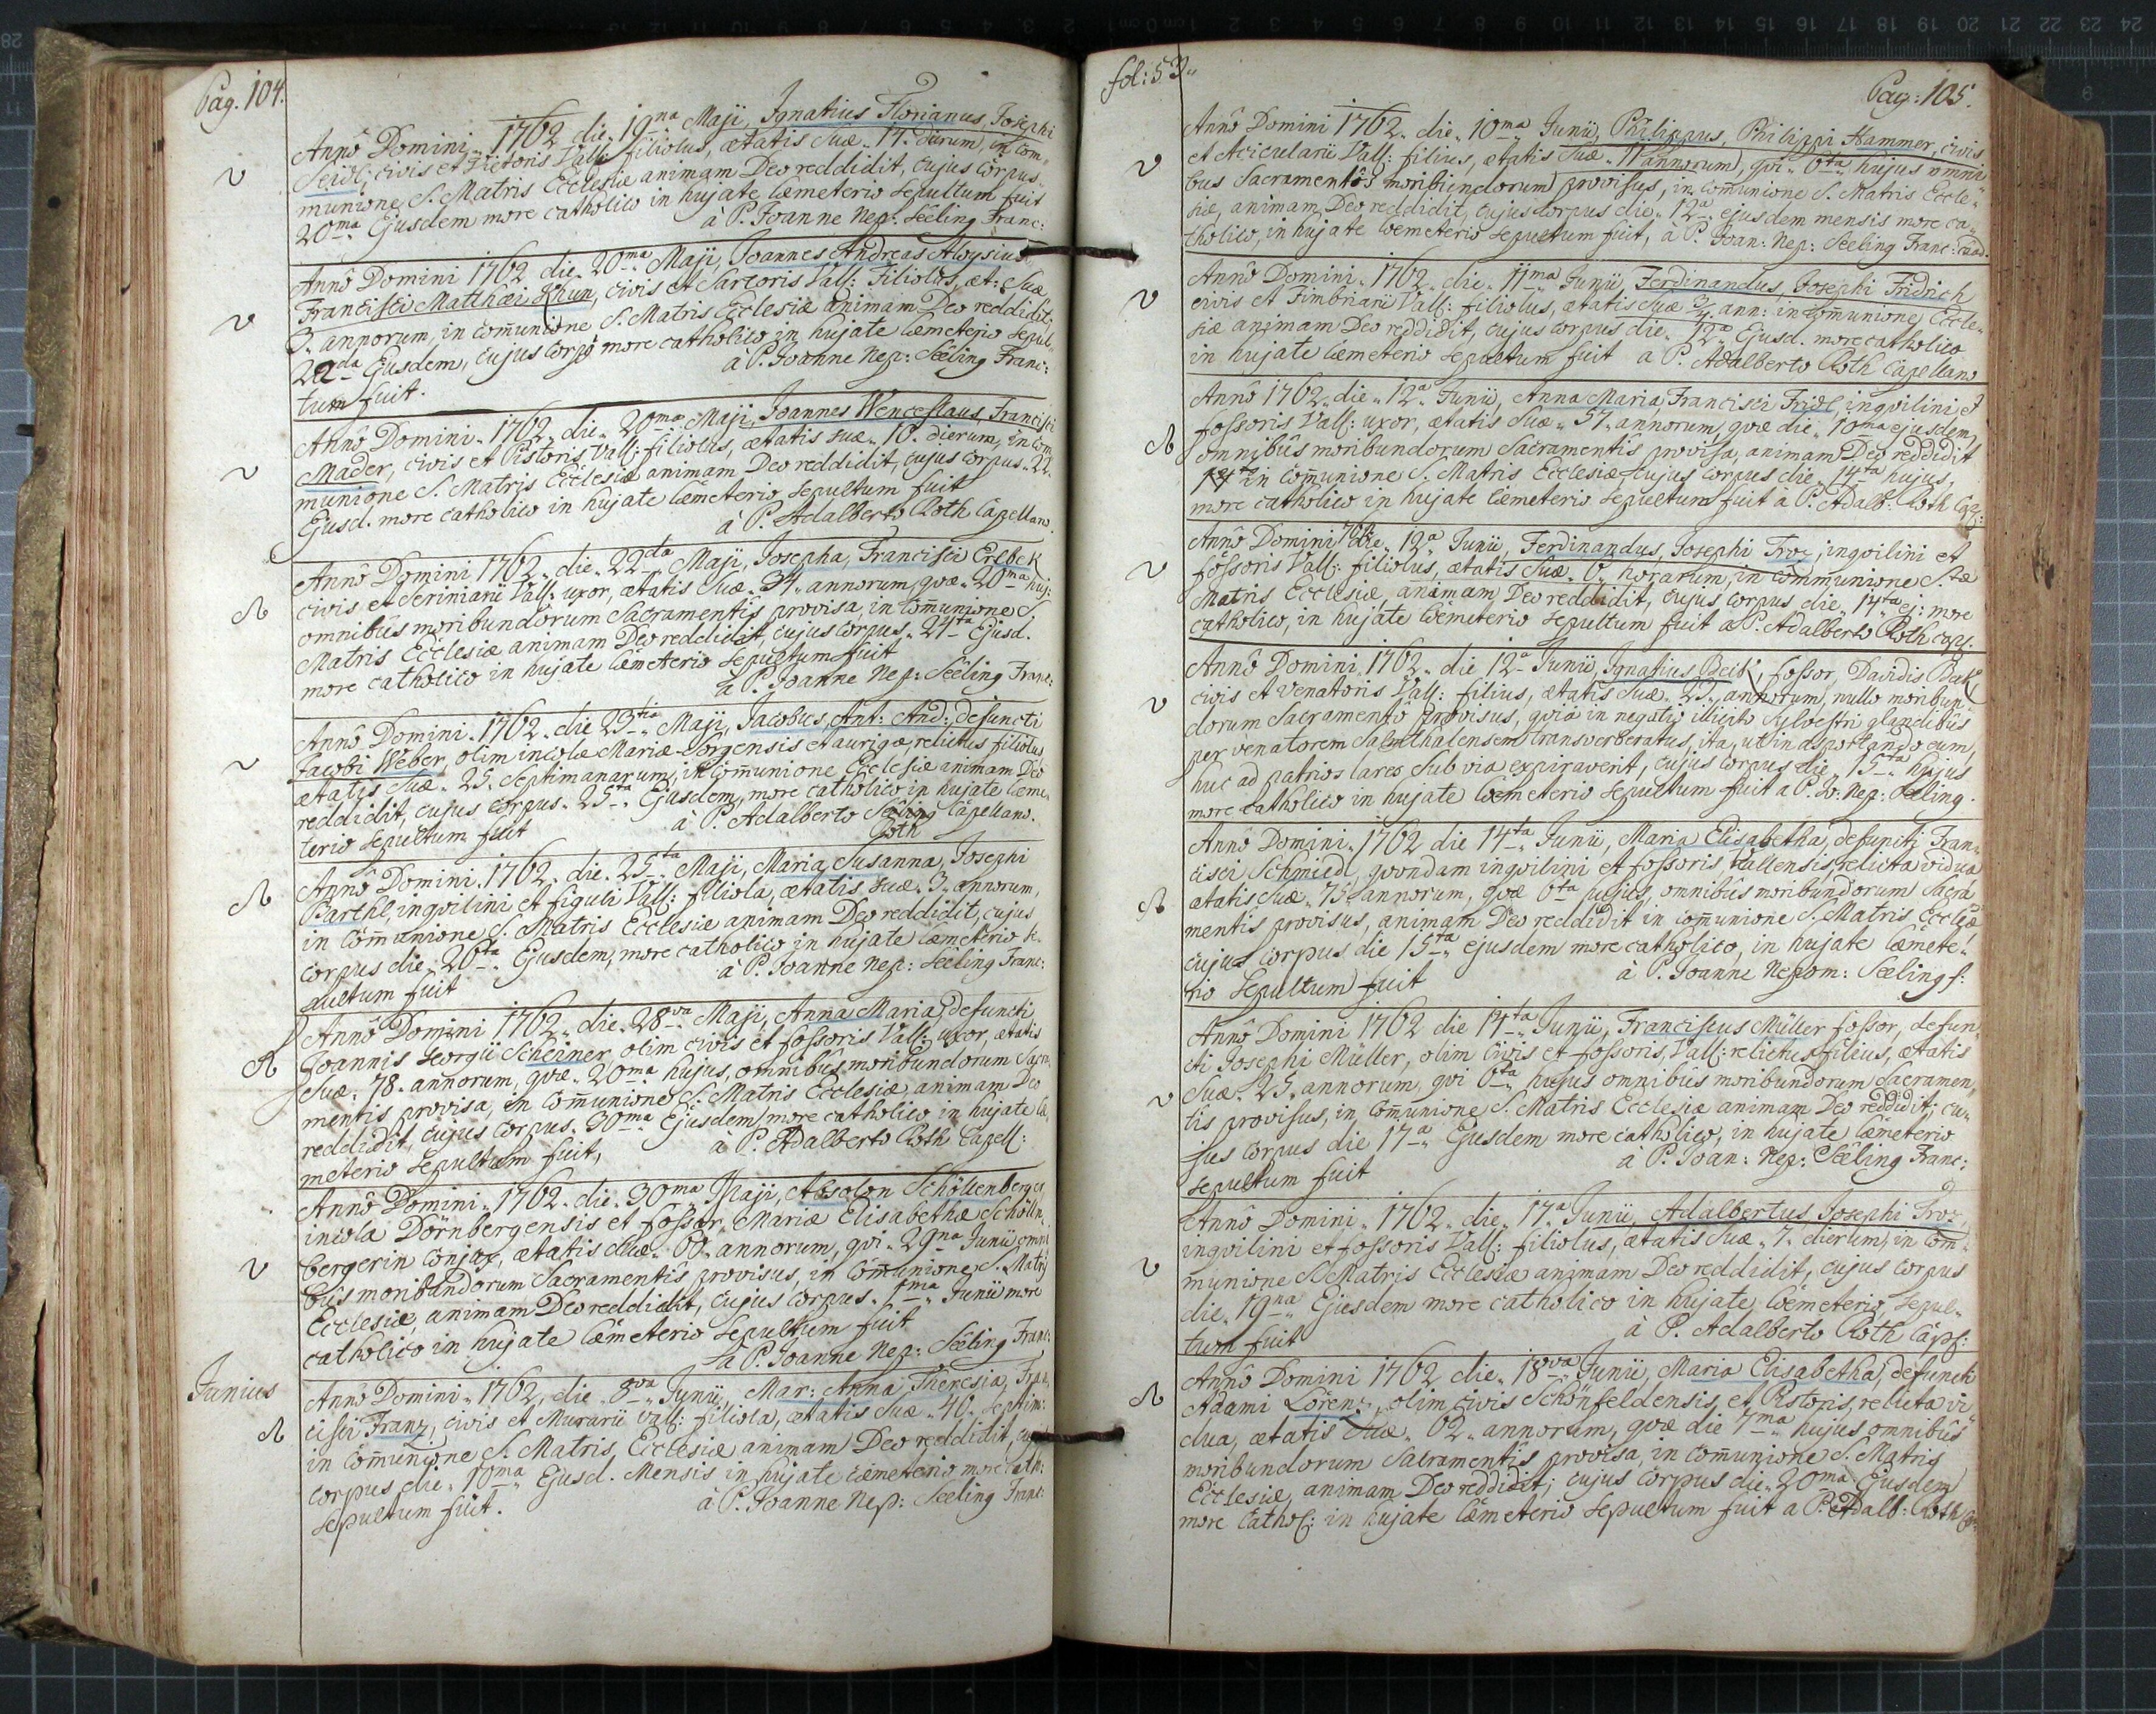 Pag. 104.
Anno Domini 1762 die 19na Maji, Ignatius Florianus, Josephi
Seidl, civis et Pictoris Vall: filiolus, ætatis Suæ 14 dierum, in Com=
munione S. Matris Ecclesiæ animam Deo reddidit, cujus Corpus
20ma Ejusdem more catholico in hujate Cæmeterio Sepultum fuit
à P. Joanne Nep: Seeling Franc:
Anno Domini 1762 die 20ma Maji, Joannes Andreas Aloysius
Francisci Matthæi Khun, civis et Sartoris Vall: Filiolus, æt: Suæ
3 annorum, in Com̄unione S. Matris Ecclesiæ animam Deo reddidit.
22da Ejusdem, cujus Corpus more catholico in hujate Cæmeterio Sepul=
tum fuit. à P. Joanne Nep: Seeling Franc:
Anno Domini 1762 die 20ma Maji, Joannes Wenceslaus, Francisci
Mader, civis et Pistoris Vall: filiolus, ætatis suæ 10 dierum, in Com=
munione S. Matris Ecclesiæ animam Deo reddidit, cujus Corpus 22
Ejusd. more catholico in hujate Cæmeterio Sepultum fuit
à P. Adalberto Roth Capellano.
Anno Domini 1762 die 22da Maji, Josepha, Francisci Erlbek
civis et Scriniarii Vall: uxor, ætatis Suæ 34 annorum, quæ 20ma huj:
omnibus moribundorum Sacramentis provisa, in Com̄unione S.
Matris Ecclesiæ animam Deo reddidit, cujus Corpus 24ta Ejusd.
more catholico in hujate Cæmeterio Sepultum fuit
à P. Joanne Nep: Seeling Franc:
Anno Domini 1762 die 23tia Maji, Jacobus, Ant: And: defuncti
Jacobi Weber, olim incolæ Mariæ-Sorgensis et aurigæ, relictus filiolus
ætatis Suæ 25 Septimanarum, in Com̄unione Ecclesiæ animam Deo
reddidit, cujus corpus 25ta Ejusdem, more catholico in hujate Cæme=
terio sepultum fuit à P. Adalberto Seeling Capellano.
Roth
Anno Domini 1762 die 25ta Maji, Maria Susanna, Josephi
Barthl, inquilini et figuli Vall: filiola, ætatis suæ 3 annorum,
in Com̄unione S. Matris Ecclesiæ animam Deo reddidit, cujus
corpus die 26ta Ejusdem, more catholico in hujate Cæmeterio se=
pultum fuit à P. Joanne Nep: Seeling Franc:
Anno Domini 1762 die 28va Maji, Anna Maria, defuncti
Joannis Georgii Scheiner, olim civis et fossoris Vall: uxor, ætatis
Suæ 78 annorum, quæ 20ma hujus, omnibus moribundorum Sacra=
mentis provisa, in Com̄unione S. Matris Ecclesiæ, animam Deo
reddidit, cujus corpus 30ma Ejusdem, more catholico in hujate Cæ=
meterio Sepultum fuit, à P. Adalberto Roth Capell:
Anno Domini 1762 die 30ma Maji, Absolon Schöllenberger
incola Dörnbergensis et fossor, Mariæ Elisabethæ Schölln=
bergerin Conjux, ætatis Suæ 60 annorum, qui 29na Junii omni=
bus moribundorum Sacramentis provisus, in Com̄unione S. Matris
Ecclesiæ, animam Deo reddidit, cujus Corpus 1ma Junii more
catholico in hujate Cæmeterio Sepultum fuit
à P. Joanne Nep: Seeling Franc:
Junius
Anno Domini 1762 die 8va Junii, Mar: Anna Theresia, Fran=
cisci Franz, civis et Murarii Vall: filiola, ætatis Suæ 40 septim:
in Com̄unione S. Matris Ecclesiæ animam Deo reddidit, cujus
corpus die 10ma Ejusd. Mensis in hujate cæmeterio more cath:
sepultum fuit. à P. Joanne Nep: Seeling Franc:
fol: 53
Pag: 105.
Anno Domini 1762 die 10ma Junii, Philippus, Philippi Hammer, civis
et Acicularii Vall: filius, ætatis Suæ 11 annorum, qui 6ta hujus omni=
bus Sacramentis moribundorum provisus, in Com̄unione S. Matris Eccle=
siæ, animam Deo reddidit, cujus corpus die 12a ejusdem mensis more ca=
tholico, in hujate Cœmeterio Sepultum fuit, à P. Joan: Nep: Seeling Franc:
Anno Domini 1762 die 11ma Junii, Ferdinandus, Josephi Fridrich
civis et Fimbriarii Vall: filiolus, ætatis Suæ 3/4 ann: in Com̄unione Eccle=
siæ animam Deo reddidit, cujus corpus die 12a Ejusd. more catholico
in hujate Cæmeterio sepultum fuit a P. Adalberto Roth Capellano
Anno 1762 die 12a Junii, Anna Maria, Francisci Fridl, inquilini et
fossoris Vall: uxor, ætatis Suæ 57 annorum, quæ die 10ma ejusdem
omnibus moribundorum Sacramentis provisa, animam Deo reddidit
in Com̄unione S. Matris Ecclesiæ cujus corpus die 14ta hujus,
more catholico in hujate Cæmeterio sepultum fuit a P. Adalb: Roth Cap:
Anno Domini 762 die 12a Junii, Ferdinandus, Josephi Troz, inquilini et
fossoris Vall: filiolus, ætatis Suæ 6 horarum, in communione S.tæ
Matris Ecclesiæ, animam Deo reddidit, cujus corpus die 14ta ej: more
catholico, in hujate Cœmeterio sepultum fuit a P. Adalberto Roth cap.
Anno Domini 1762 die 12a Junii, Ignatius Beik, fossor, Davidis Beik
civis et Venatoris Vall: filius, ætatis Suæ 23 annorum, nullo moribun=
dorum Sacramento provisus, quia in negotio illicito Sylvestri glandibus
per venatorem Salmthalensem transverberatus, ita, ut in asportando eum,
huc ad patrios lares Sub via expiraverit, cujus corpus die 15ta hujus
more catholico in hujate Cœmeterio Sepultum fuit a P. Jo: Nep: Seeling.
Anno Domini 1762 die 14ta Junii, Maria Elisabetha, defuncti Fran=
cisci Schmiedl, quondam inquilini et fossoris Vallensis, relicta vidua
ætatis Suæ 75 annorum, quæ 6ta hujus, omnibus moribundorum Sacra=
mentis provisus, animam Deo reddidit in com̄unione S. Matris Ecclesiæ
cujus corpus die 15ta ejusdem more catholico, in hujate Cæmete=
rio Sepultum fuit à P. Joanne Nepom: Seeling f:
Anno Domini 1762 die 14ta Junii, Franciscus Müller fossor, defun=
cti Josephi Müller, olim Civis et fossoris, Vall: relictus filius, ætatis
Suæ 25 annorum, qui 6ta hujus omnibus moribundorum Sacramen=
tis provisus, in Com̄unione S. Matris Ecclesiæ animam Deo reddidit; cu=
jus corpus die 17a Ejusdem more catholico, in hujate Cæmeterio
sepultum fuit à P. Joan: Nep: Seeling Franc:
Anno Domini 1762 die 17a Junii, Adalbertus Josephi Troz,
inquilini et fossoris Vall: filiolus, ætatis Suæ 7 dierum, in Com=
munione S. Matris Ecclesiæ animam Deo reddidit, cujus corpus
die 19na Ejusdem more catholico in hujate Cœmeterio, Sepul=
tum fuit à P. Adalberto Roth Cap:
Anno Domini 1762 die 18va Junii, Maria Elisabetha, defuncti
Adami Lörenz, olim civis Schönfeldensis, et Pistoris, relicta vi=
dua, ætatis Suæ 62 annorum, quæ die 7ma hujus omnibus
moribundorum Sacramentis provisa, in com̄unione S. Matris
Ecclesiæ, animam Deo reddidit; cujus corpus die 20ma Ejusdem
more cathol: in hujate Cæmeterio Sepultum fuit a P. Adalb: Roth